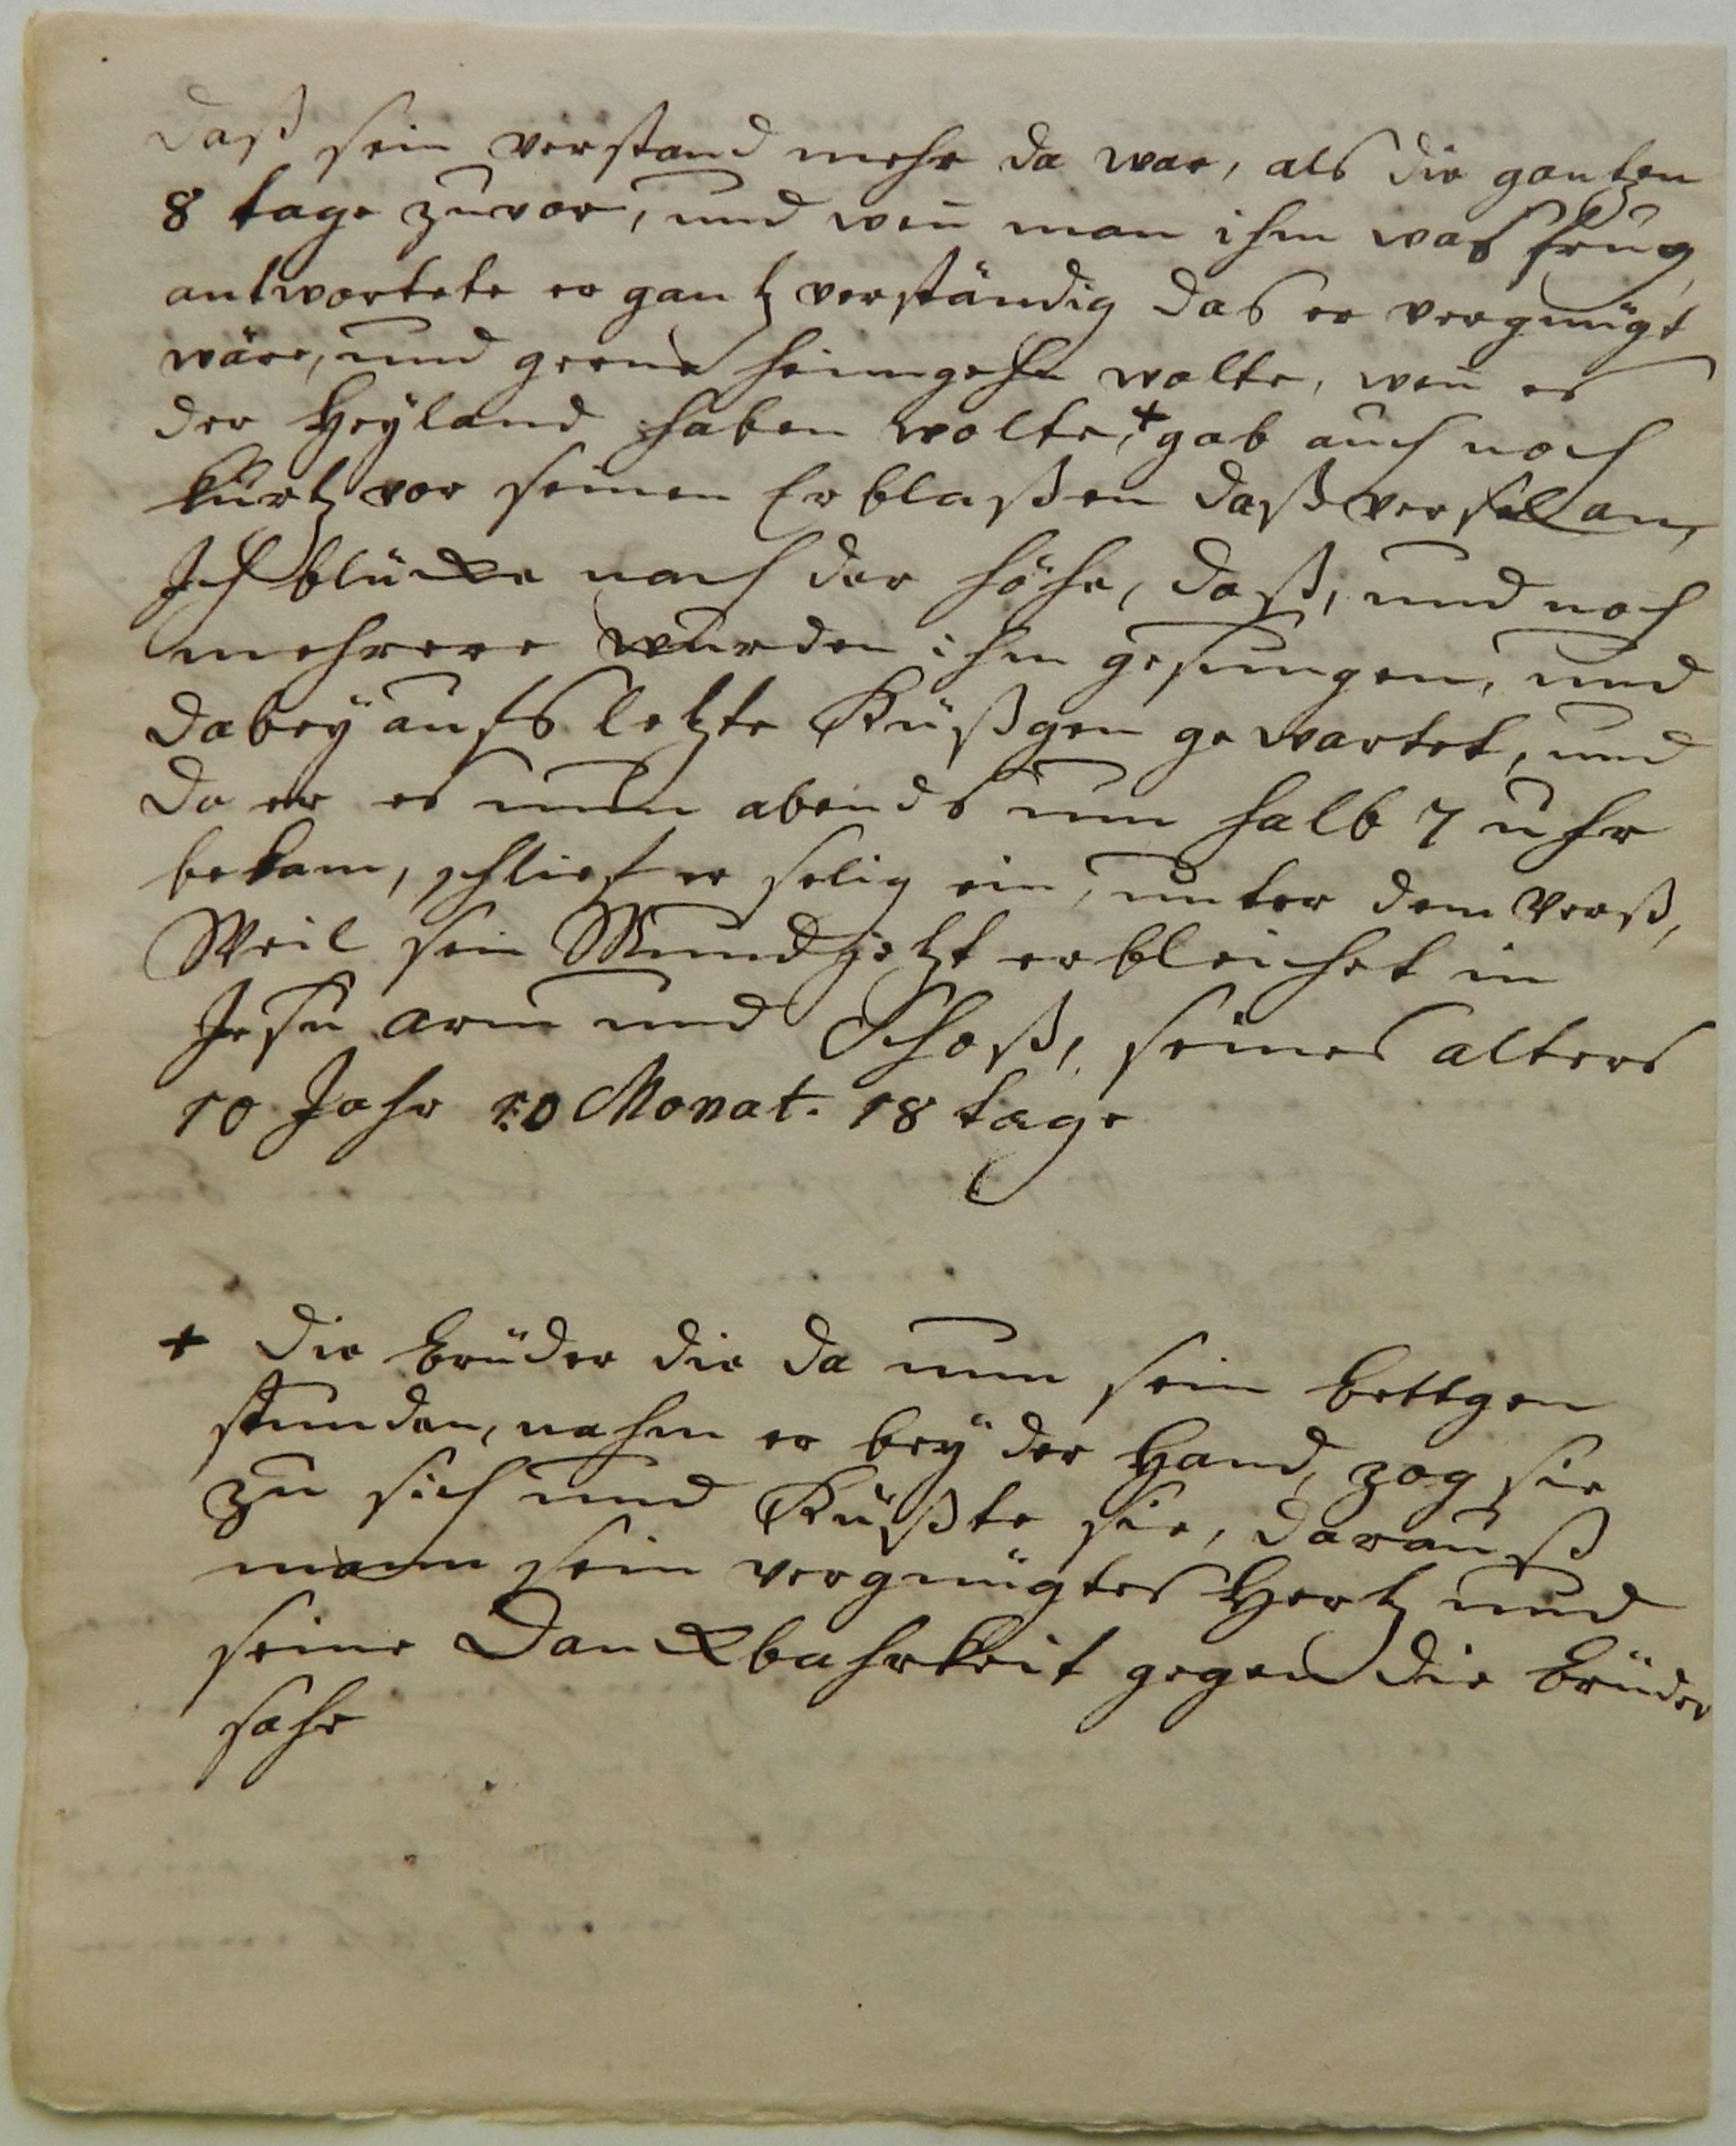 daß sein verstand mehr da war, als die gantzen
8 tage zuvor, und weñ man ihm was frug,
antwortete er gantz verständig das er vergnügt
wäre, und gerne heimgehe wolte, weñ es
der Heyland haben wolte, + gab auch noch
kurtz vor seinen Erblaßen daß versel an,
Ich blücke nach der höhe, daß, und noch
mehrere wurden ihm gesungen, und
dabeÿ aufs letzte Küßgen gewartet, und
da er es nun abends um halb 7 uhr
bekam, schlief er selig ein, unter dem Verß,
Weil sein Mund jetzt erbleichet in
Jesu arm und Schoß, seines alters
10 Jahr 10 Monat. 18 tage
+ die brüder die da um sein bettgen
stunden, nahm er beÿ der Hand, zog sie
zu sich und Küßte sie, darauß
mann sein vergnügtes Hertz und
seine Danckbahrkeit gegen die brüder
sahe